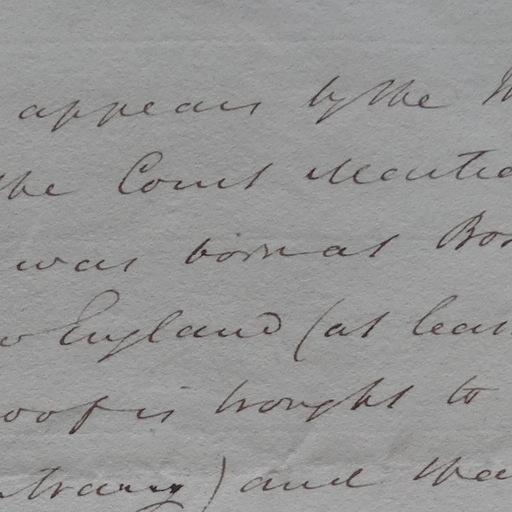 appears by the
the Court Martia
was born at Bos
w England (at leas
roof is brought to
ntrary) and tha